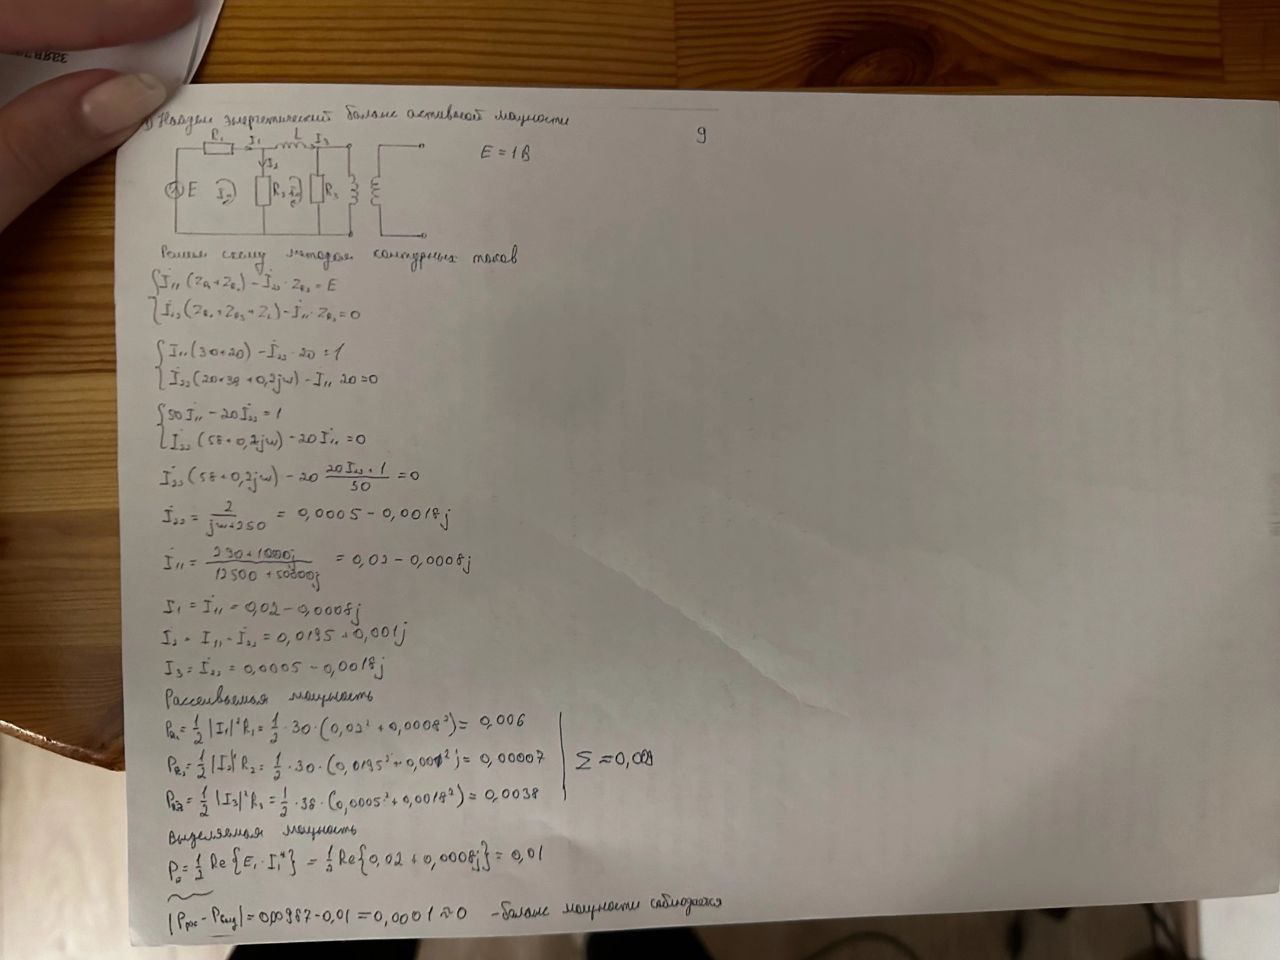 Найдем энергетический баланс активной мощности
9
R₁ I₁ L I₃
E = 1 В
I₂
E I₁₁ R₂ I₂₂ R₃
Решим схему методом контурных токов
{ İ₁₁ (Z_R₁ + Z_R₂) - İ₂₂ · Z_R₂ = E
İ₂₂ (Z_R₂ + Z_R₃ + Z_L) - İ₁₁ · Z_R₂ = 0
{ İ₁₁ (30+20) - İ₂₂ · 20 = 1
İ₂₂ (20+38+0,2jw) - İ₁₁ 20 = 0
{ 50 İ₁₁ - 20 İ₂₂ = 1
İ₂₂ (58+0,2jw) - 20 İ₁₁ = 0
İ₂₂ (58+0,2jw) - 20 (20 İ₂₂ + 1)/50 = 0
İ₂₂ = 2/(jw+250) = 0,0005 - 0,0018j
İ₁₁ = (290+1000j)/(12500+50000j) = 0,02 - 0,0008j
İ₁ = İ₁₁ = 0,02 - 0,0008j
İ₂ = İ₁₁ - İ₂₂ = 0,0195 + 0,001j
İ₃ = İ₂₂ = 0,0005 - 0,0018j
Рассеиваемая мощность
P_R₁ = 1/2 |I₁|² R₁ = 1/2 · 30 · (0,02² + 0,0008²) = 0,006
P_R₂ = 1/2 |I₂|² R₂ = 1/2 · 30 · (0,0195² + 0,001²) = 0,00007
P_R₃ = 1/2 |I₃|² R₃ = 1/2 · 38 · (0,0005² + 0,0018²) = 0,0038
Выделяемая мощность
P = 1/2 Re{E₁ · I₁*} = 1/2 Re{0,02 + 0,0008j} = 0,01
|P - P| = 0,00987 - 0,01 = 0,0001 ≈ 0 - баланс мощности соблюдается